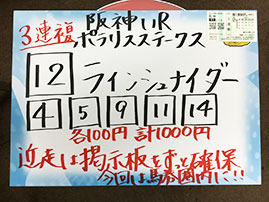 3連複 阪神11R
ポラリスステークス
12 ラインシュナイダー
4 5 9 11 14
各100円 計1000円
近走は掲示板をずっと確保
今回は馬券圏内に!!